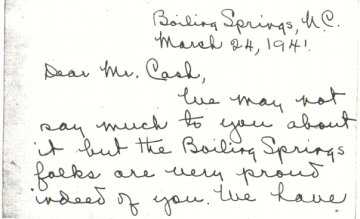 Boiling Springs, N.C.
March 24, 1941.
Dear Mr. Cash,
We may not
say much to you about
it but the Boiling Springs
folks are very proud
indeed of you. We have